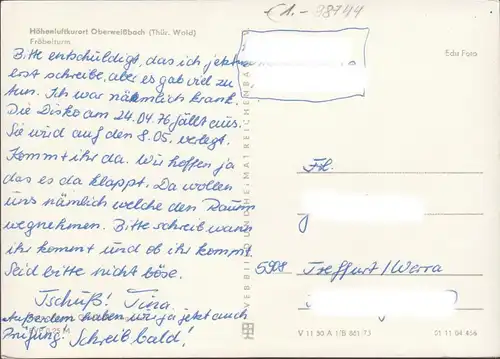 €1.- 98744
Höhenluftkurort Oberweißbach (Thür. Wald)
Fröbelturm
Echt Foto
Bitte entschuldigt, das ich jetzt
erst schreibe, aber es gab viel zu
tun. Ich war nähmlich krank.
Die Disko am 24.04.76 fällt aus.
Sie wird auf den 8.05. verlegt.
Kommt ihr da. Wir hoffen ja
das es da klappt. Da wollen
uns nämlich welche den Raum
wegnehmen. Bitte schreib wann
ihr kommt und ob ihr kommt.
Seid bitte nicht böse.
Tschüß! Tina.
Außerdem haben wir ja jetzt auch
Prüfung! Schreib bald!
VEB BILD UND HEIMAT REICHENBA
Frl.
5908 Treffurt/Werra
V 11 50 A 1/B 661/75
01 11 04 456